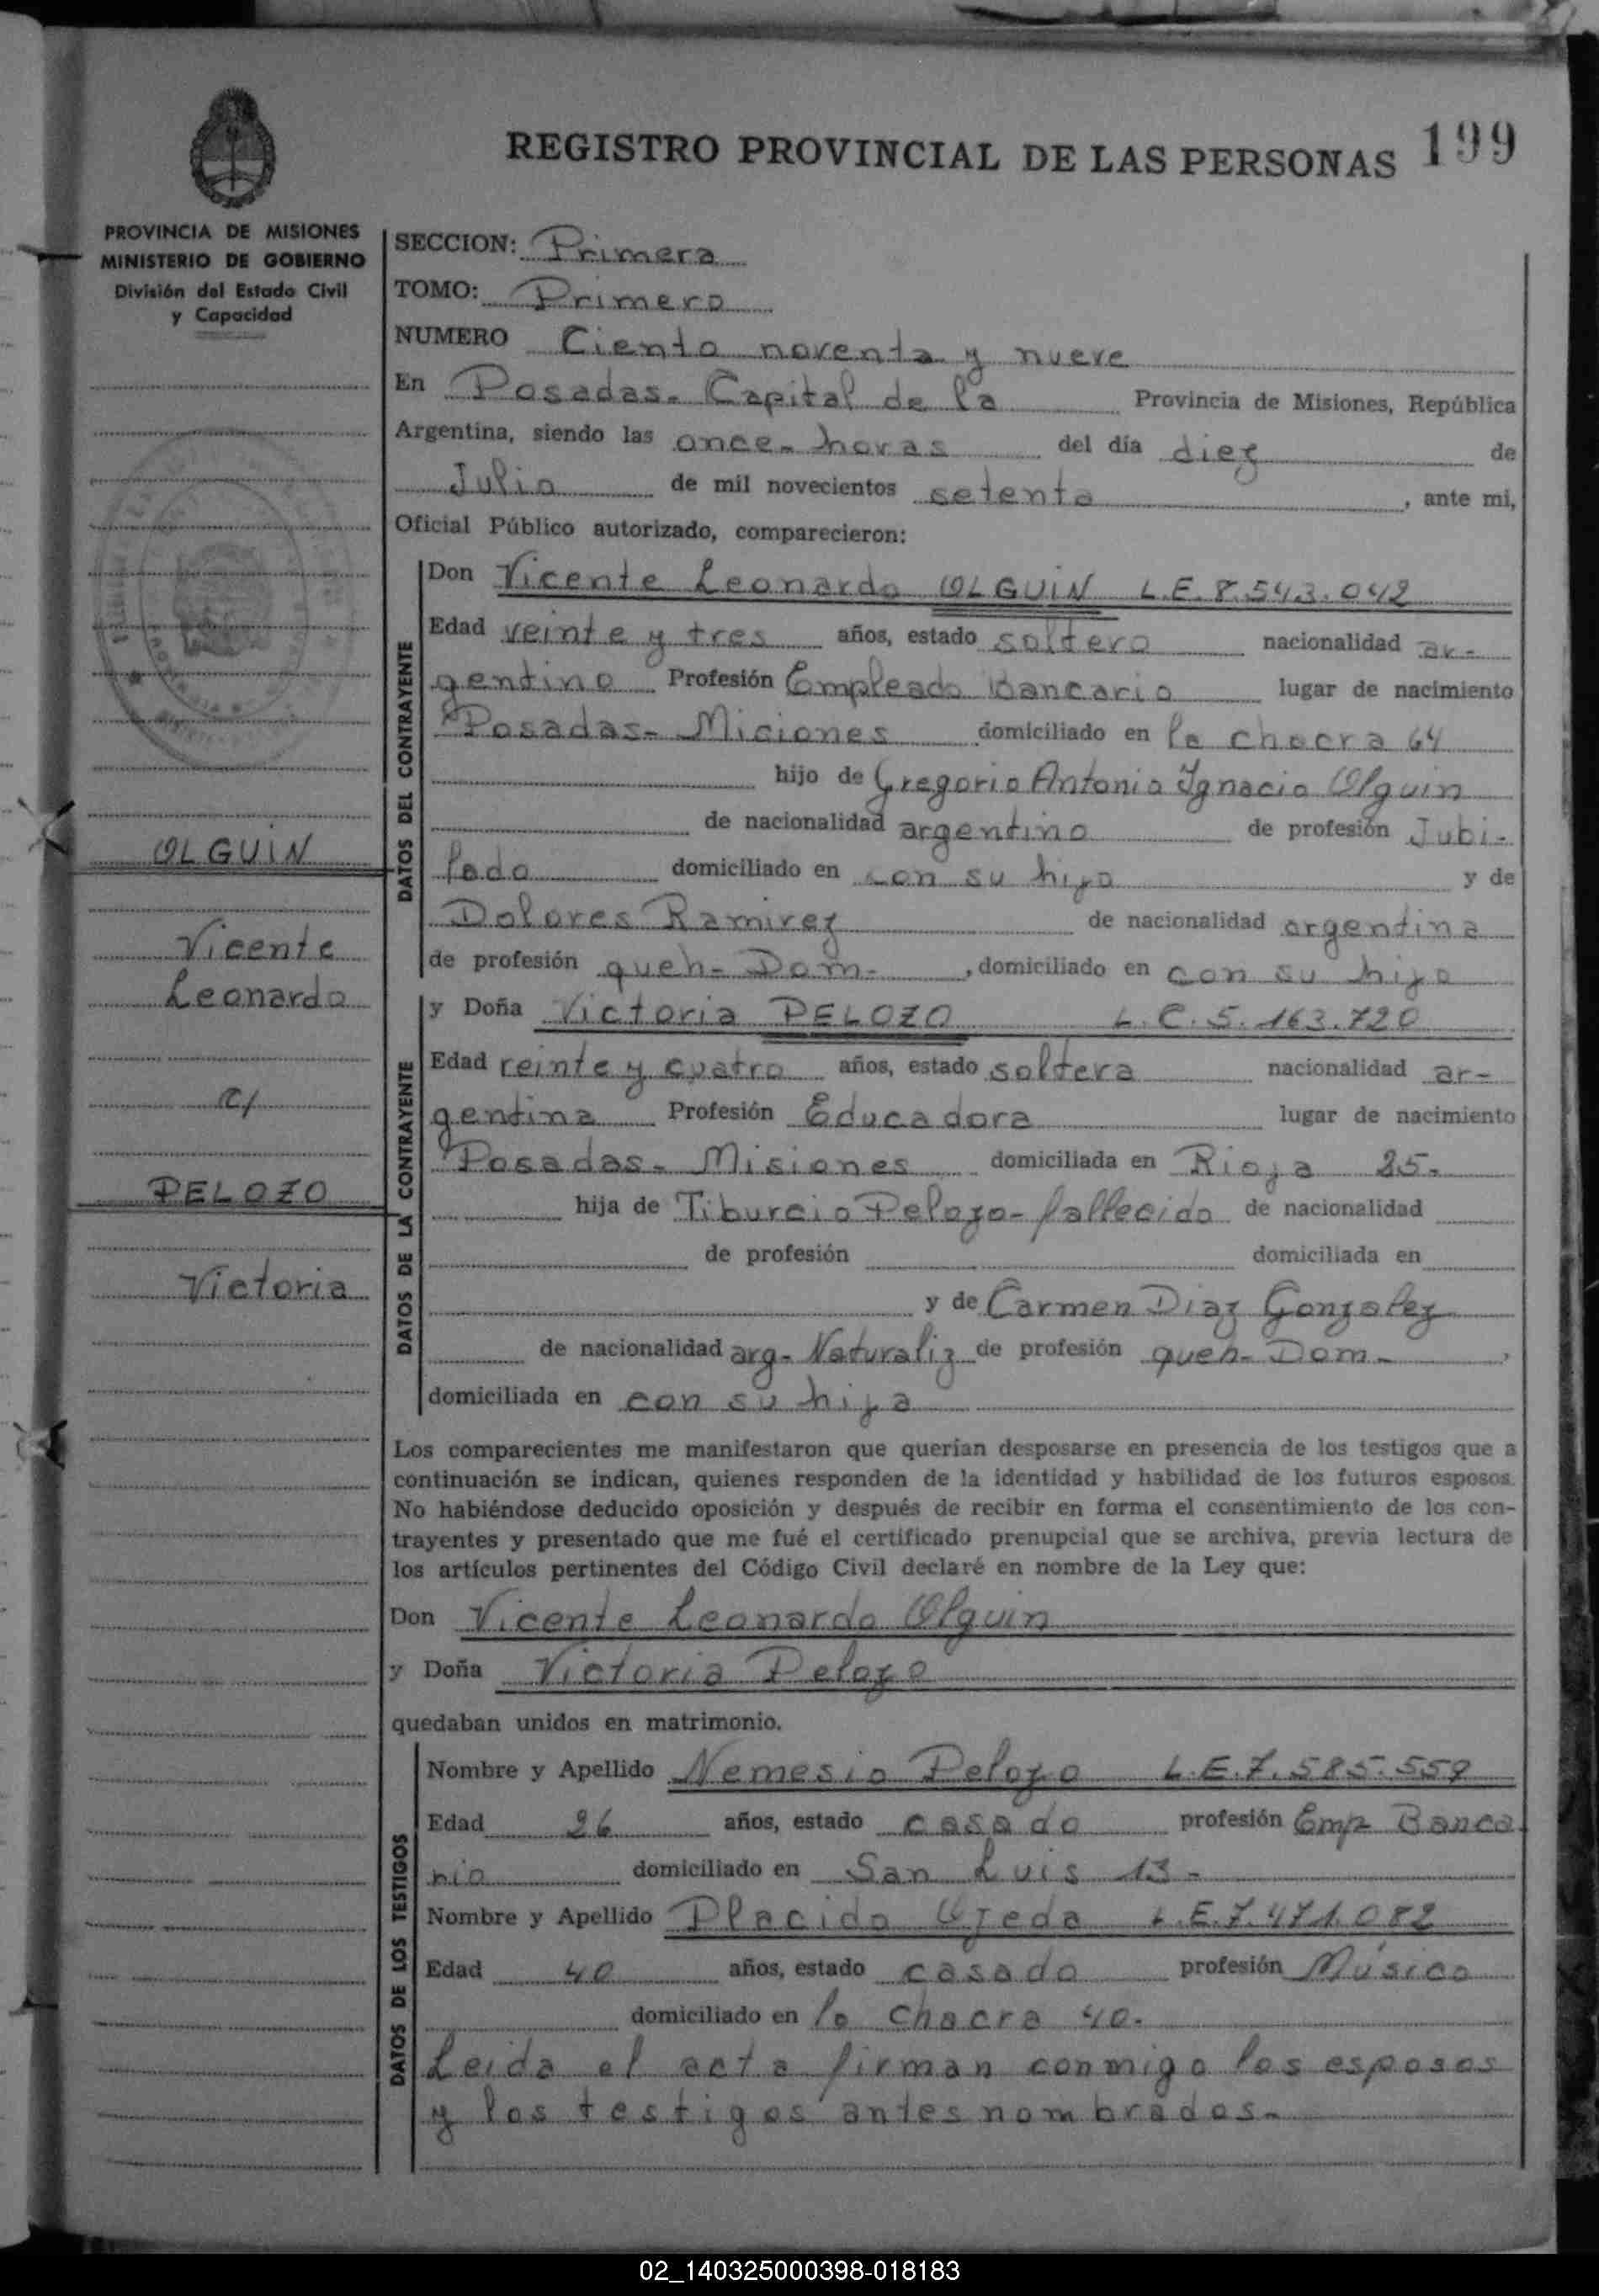 REGISTRO PROVINCIAL DE LAS PERSONAS 199
PROVINCIA DE MISIONES
MINISTERIO DE GOBIERNO
División del Estado Civil
y Capacidad
SECCION: Primera
TOMO: Primero
NUMERO Ciento noventa y nueve
En Posadas - Capital de la Provincia de Misiones, República
Argentina, siendo las once - horas del día diez de
Julio de mil novecientos setenta, ante mi,
Oficial Público autorizado, comparecieron:
DATOS DEL CONTRAYENTE
Don Vicente Leonardo OLGUIN L.E. 8.543.042
Edad veinte y tres años, estado soltero nacionalidad ar-
gentino Profesión Empleado Bancario lugar de nacimiento
Posadas - Miciones domiciliado en la chacra 64
hijo de Gregorio Antonio Ignacio Olguin
de nacionalidad argentino de profesión Jubi-
lado domiciliado en con su hijo y de
Dolores Ramirez de nacionalidad argentina
de profesión queh - Dom -, domiciliado en con su hijo
OLGUIN
Vicente
Leonardo
C/
PELOZO
Victoria
DATOS DE LA CONTRAYENTE
y Doña Victoria PELOZO L.C. 5.163.720
Edad veinte y cuatro años, estado soltera nacionalidad ar-
gentina Profesión Educadora lugar de nacimiento
Posadas - Misiones domiciliada en Rioja 85 -
hija de Tiburcio Pelozo - fallecido de nacionalidad
de profesión domiciliada en
y de Carmen Diaz Gonzalez
de nacionalidad arg - Naturaliz de profesión queh - Dom -,
domiciliada en con su hija
Los comparecientes me manifestaron que querían desposarse en presencia de los testigos que a
continuación se indican, quienes responden de la identidad y habilidad de los futuros esposos.
No habiéndose deducido oposición y después de recibir en forma el consentimiento de los con-
trayentes y presentado que me fué el certificado prenupcial que se archiva, previa lectura de
los artículos pertinentes del Código Civil declaré en nombre de la Ley que:
Don Vicente Leonardo Olguin
y Doña Victoria Pelozo
quedaban unidos en matrimonio.
DATOS DE LOS TESTIGOS
Nombre y Apellido Nemesio Pelozo L.E. 7.585.559
Edad 26 años, estado casado profesión Emp Banca
rio domiciliado en San Luis 13 -
Nombre y Apellido Placido Ojeda L.E. 7.471.082
Edad 40 años, estado casado profesión Músico
domiciliado en la chacra 40.
Leida el acta firman conmigo los esposos
y los testigos antes nombrados -
02_140325000398-018183